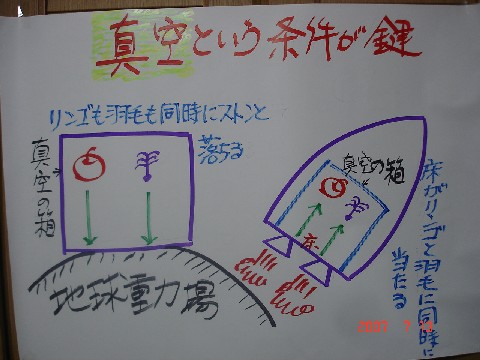 真空という条件が鍵
リンゴも羽毛も同時にストンと
落ちる
真空の箱
地球重力場
真空の箱
床
床がリンゴと羽毛に同時に
当たる